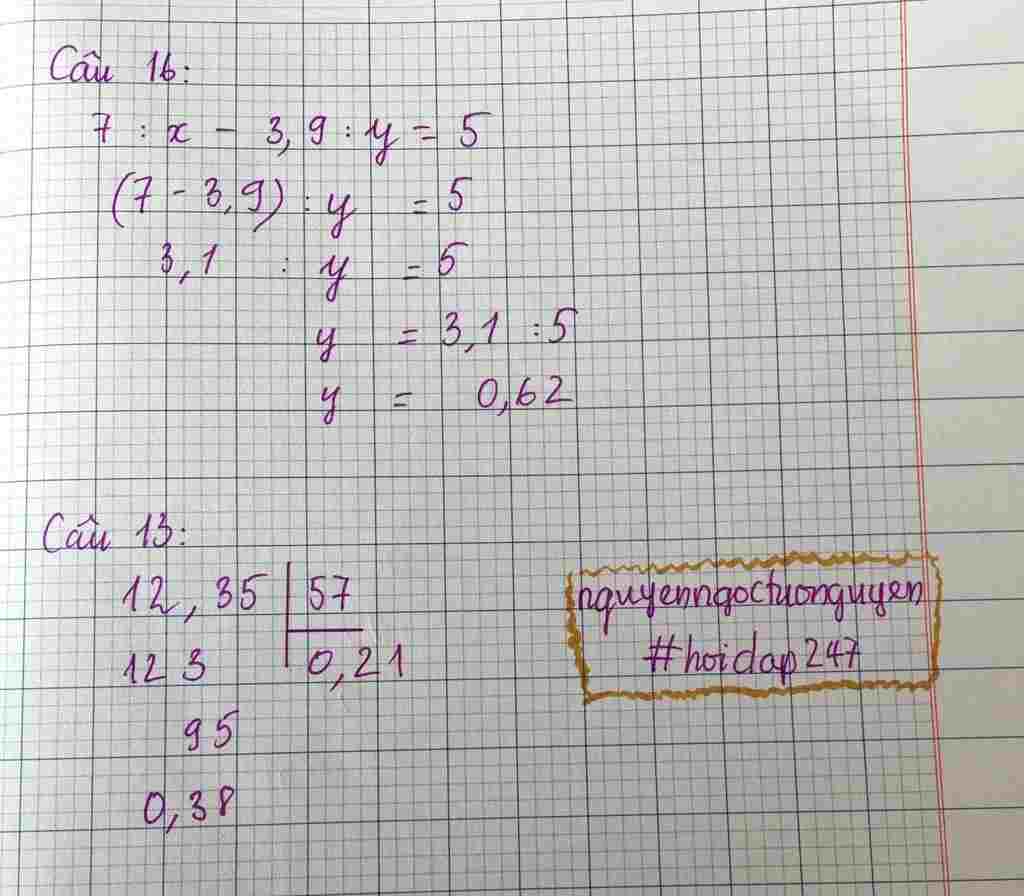 Câu 16:
7 : x - 3,9 : y = 5
(7 - 3,9) : y = 5
3,1 : y = 5
y = 3,1 : 5
y = 0,62
Câu 13:
12,35 | 57
12 3 0,21
95
0,38
nguyenngoctuonguyen
#hoidap247